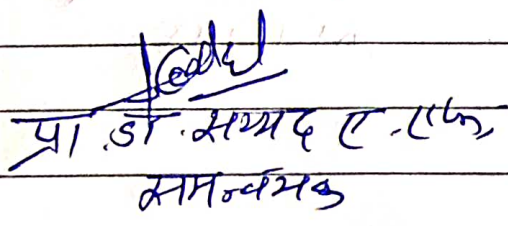 प्रा.डॉ. सय्यद ए.एफ.
समन्वयक